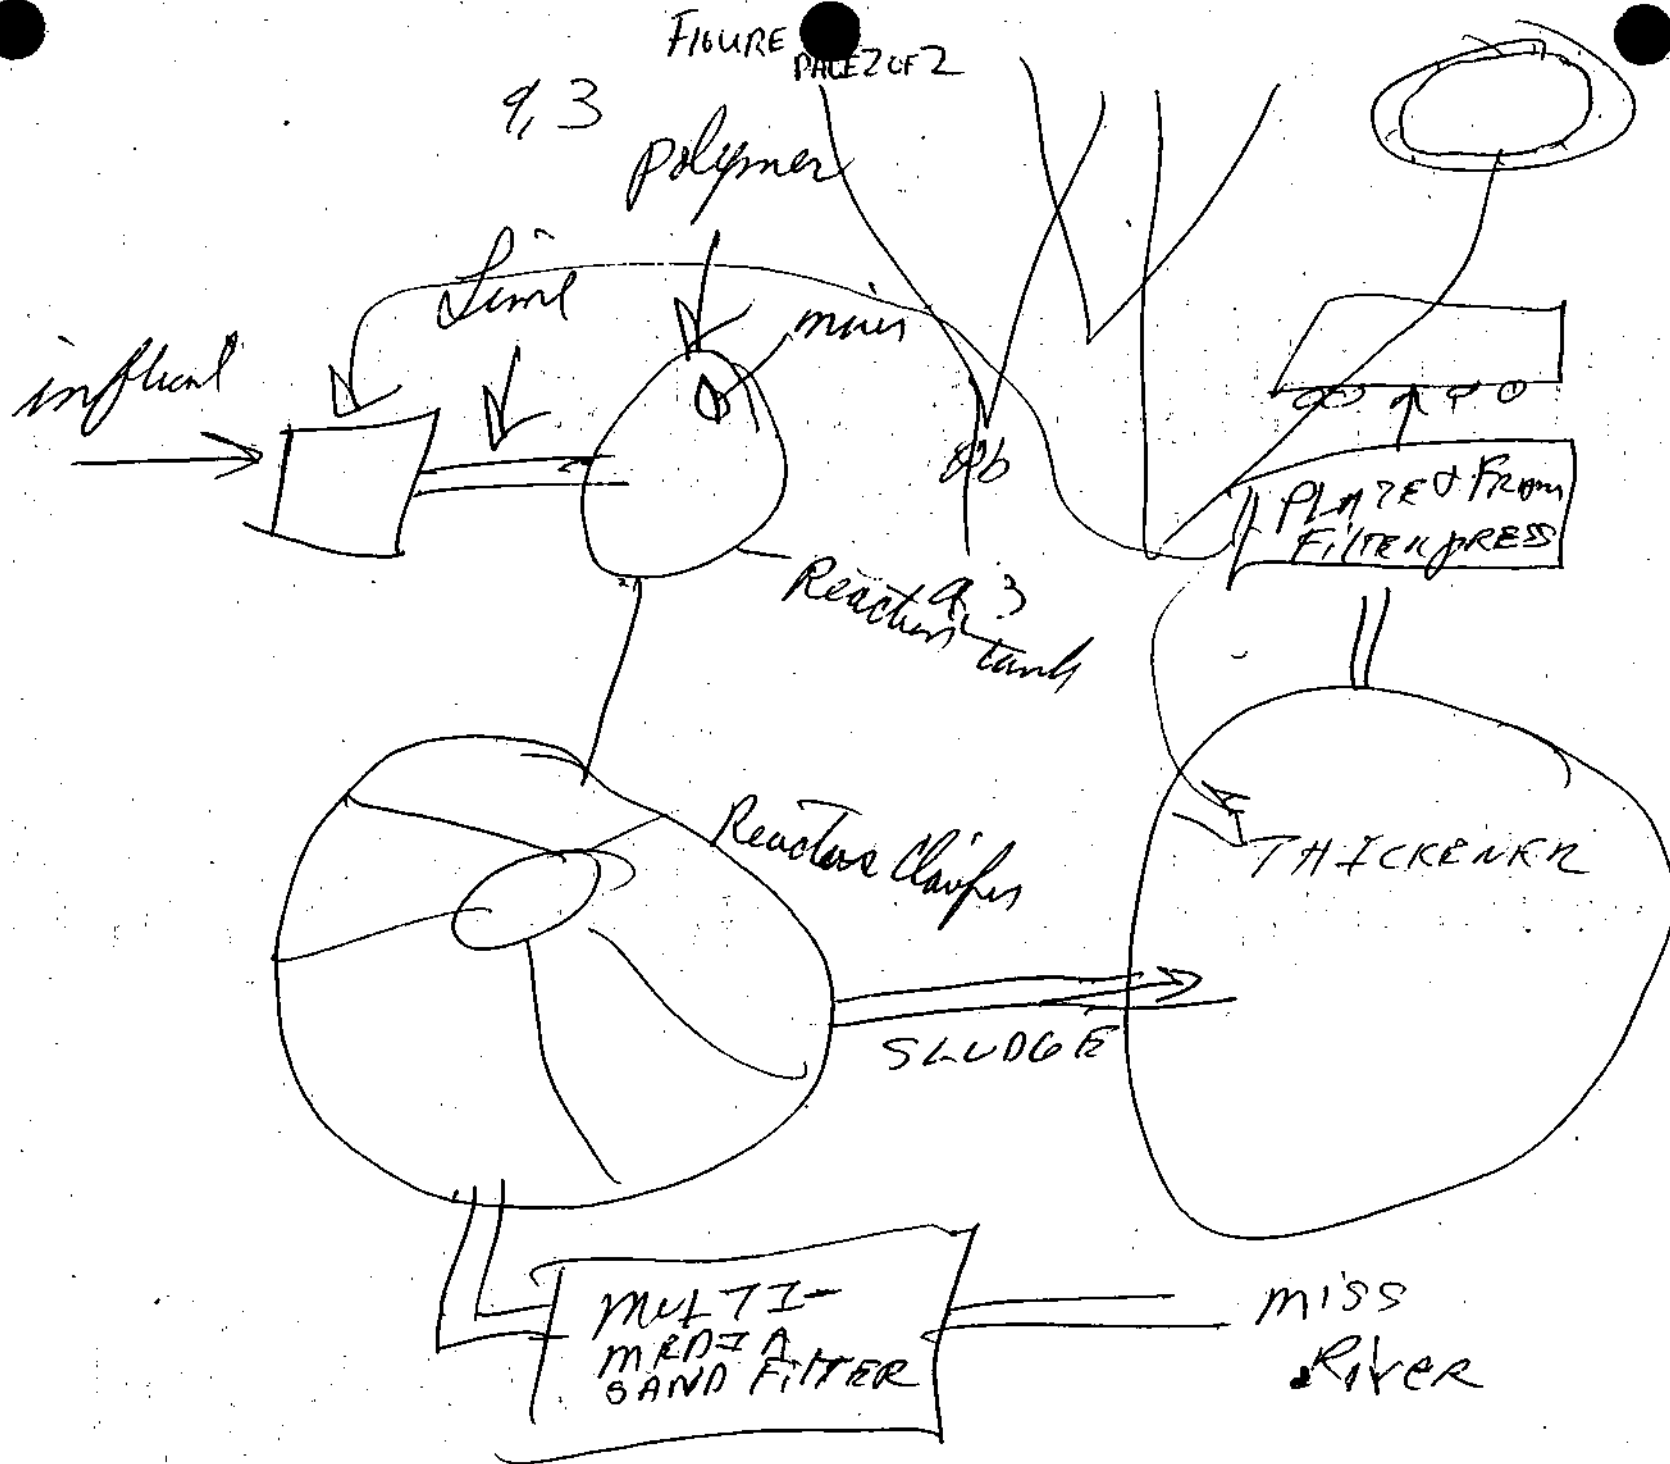 FIGURE
PAGE 2 OF 2
9,3
polymer
Lime
influent
Pb
PLATE & FRAM
FILTER PRESS
9,3
Reaction
tank
Reactor Clarifier
THICKENER
SLUDGE
MULTI-
MEDIA
SAND FILTER
MISS
RIVER